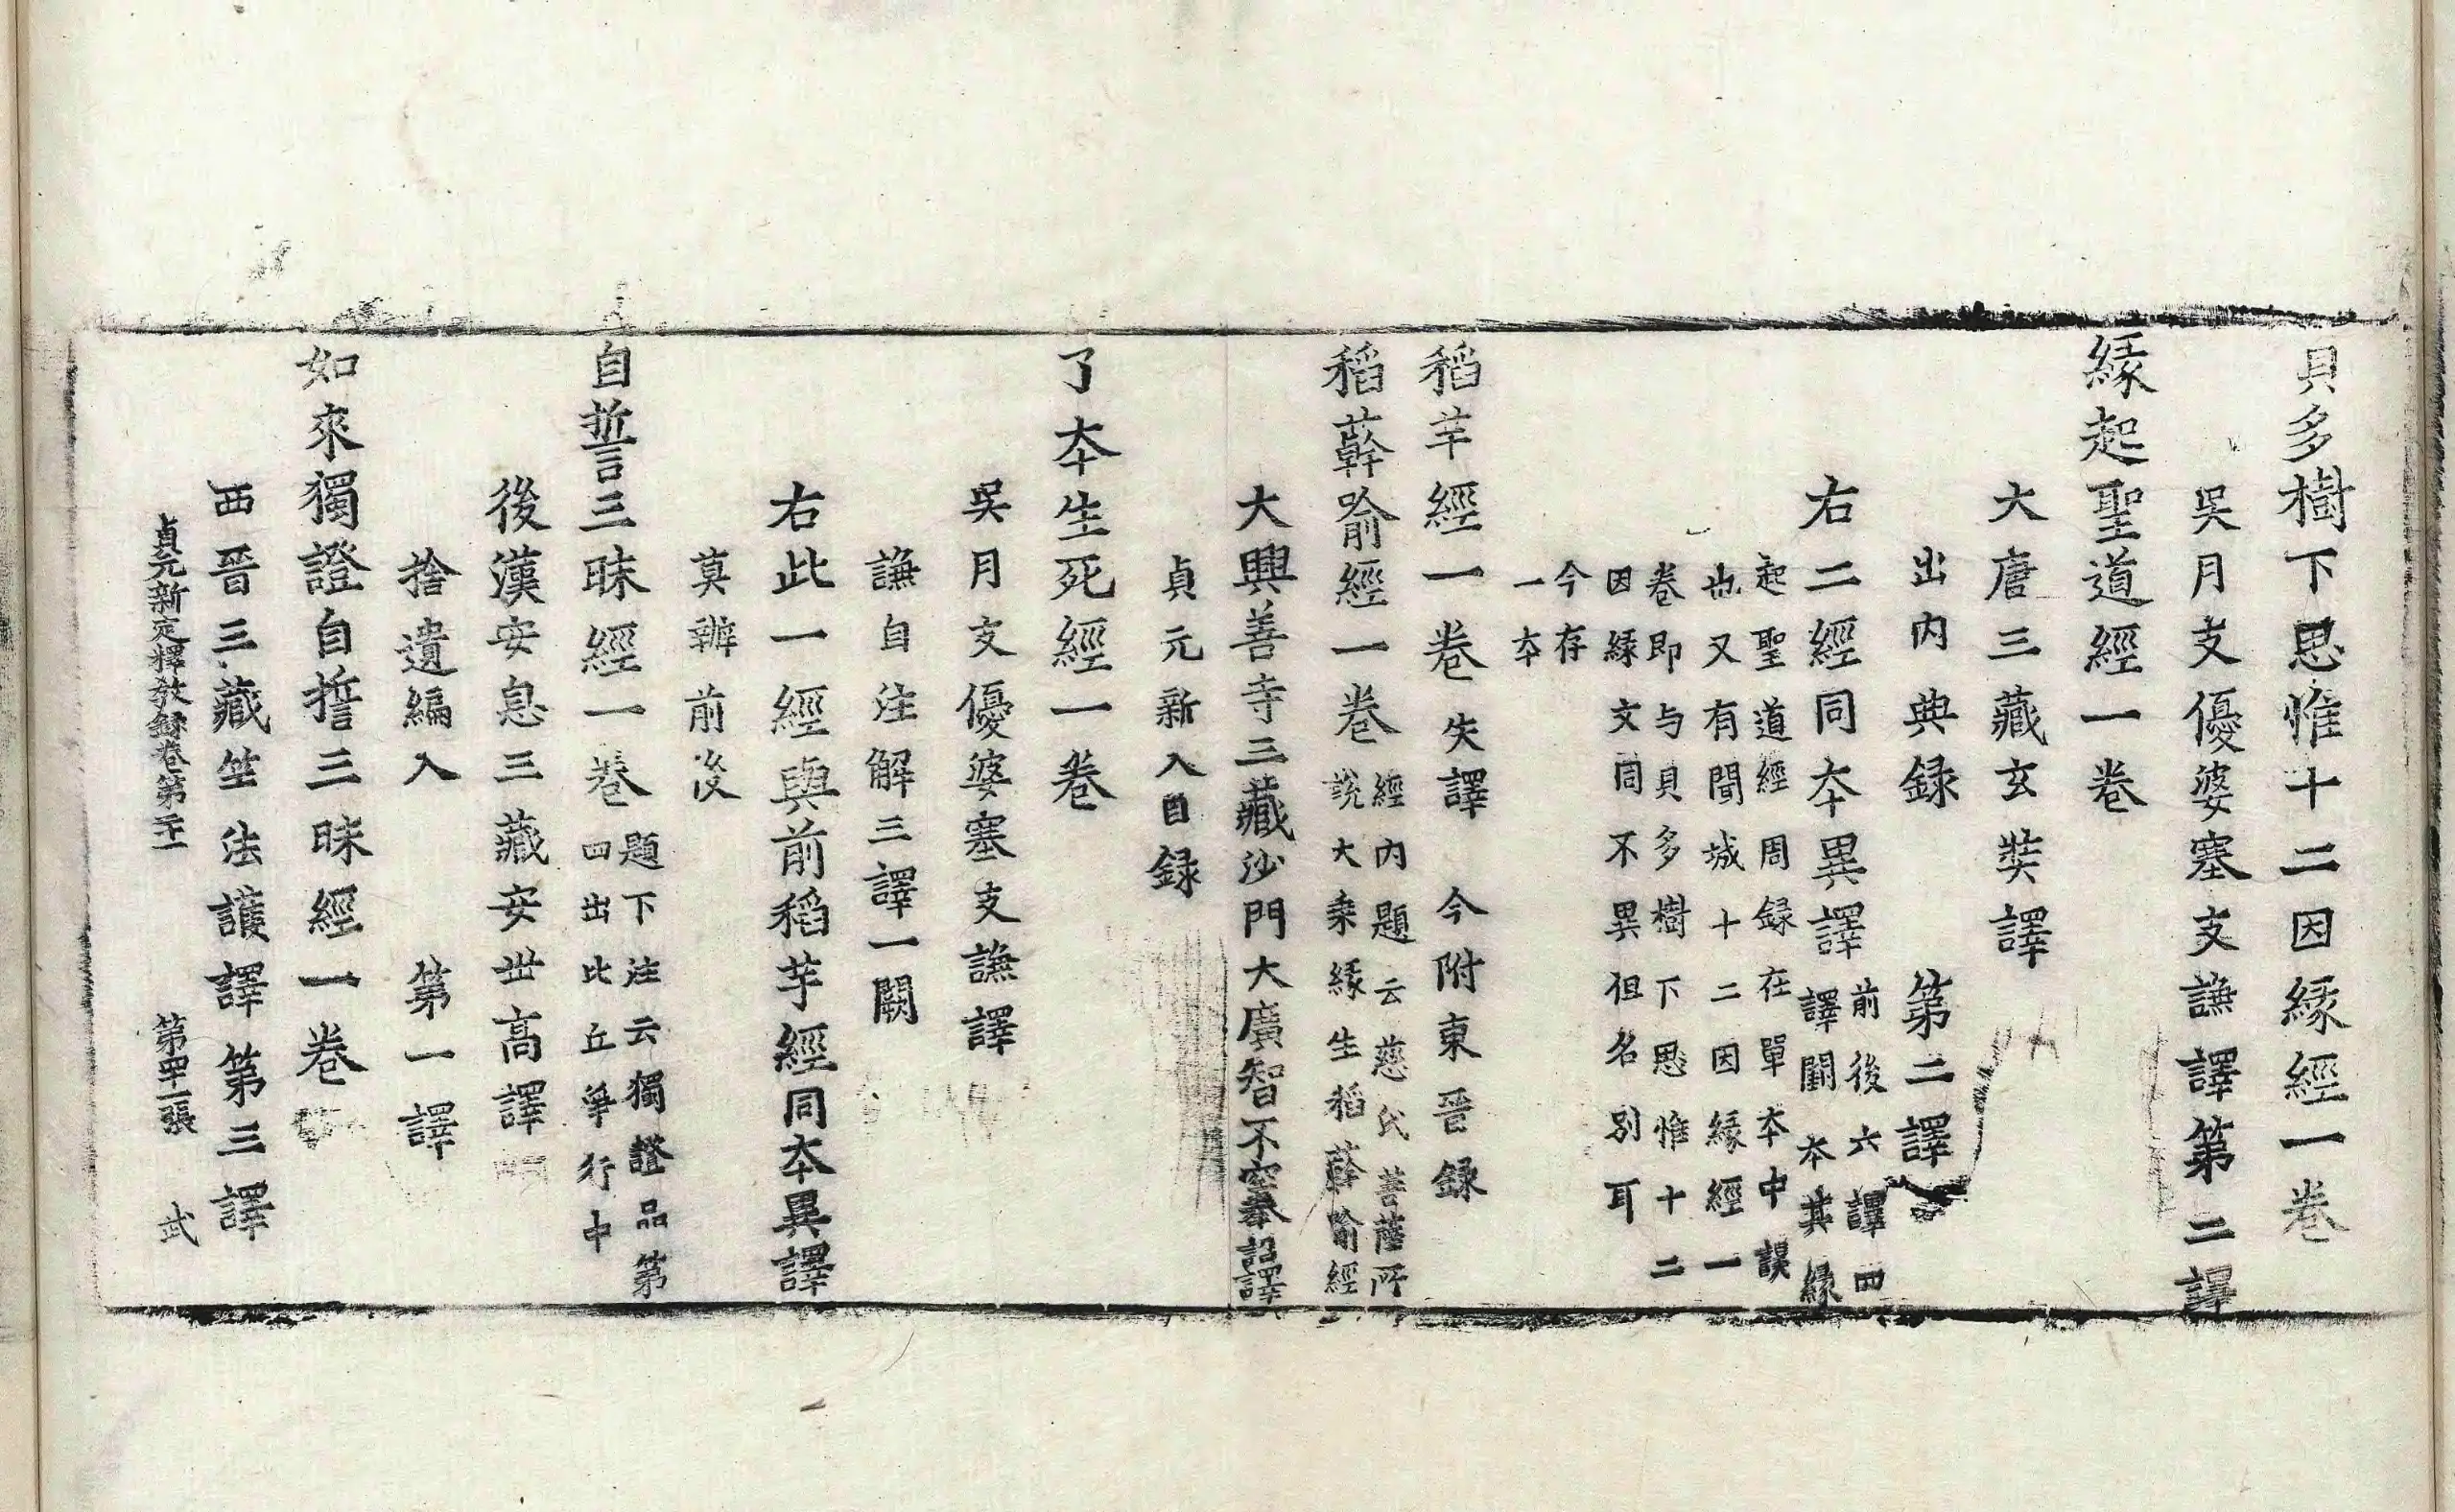 貝多樹下思惟十二因緣經一卷
吳月支優婆塞支謙譯第二譯
緣起聖道經一卷
大唐三藏玄奘譯
出內典録　第二譯
右二經同本異譯
前後六譯四
譯闕本其緣
起聖道經周録在單本中誤
也又有閒城十二因緣經一
卷即与貝多樹下思惟十二
因緣文同不異但名別耳
今存
一本
稻芉經一卷　失譯　今附東晉録
稻𦼮喻經一卷
經內題云慈氏菩薩所
說大乗緣生稻𦼮喻經
大興善寺三藏沙門大廣智不空奉詔譯
貞元新入目録
了本生死經一卷
吳月支優婆塞支謙譯
謙自注解三譯一闕
右此一經與前稻芉經同本異譯
莫辦前後
自誓三昧經一卷
題下注云獨證品第
四出比丘爭行中
後漢安息三藏安世高譯
捨遺編入　第一譯
如來獨證自誓三昧經一卷
西晉三藏竺法護譯第三譯
貞元新定釋教録卷第二十一　第四十二張　武